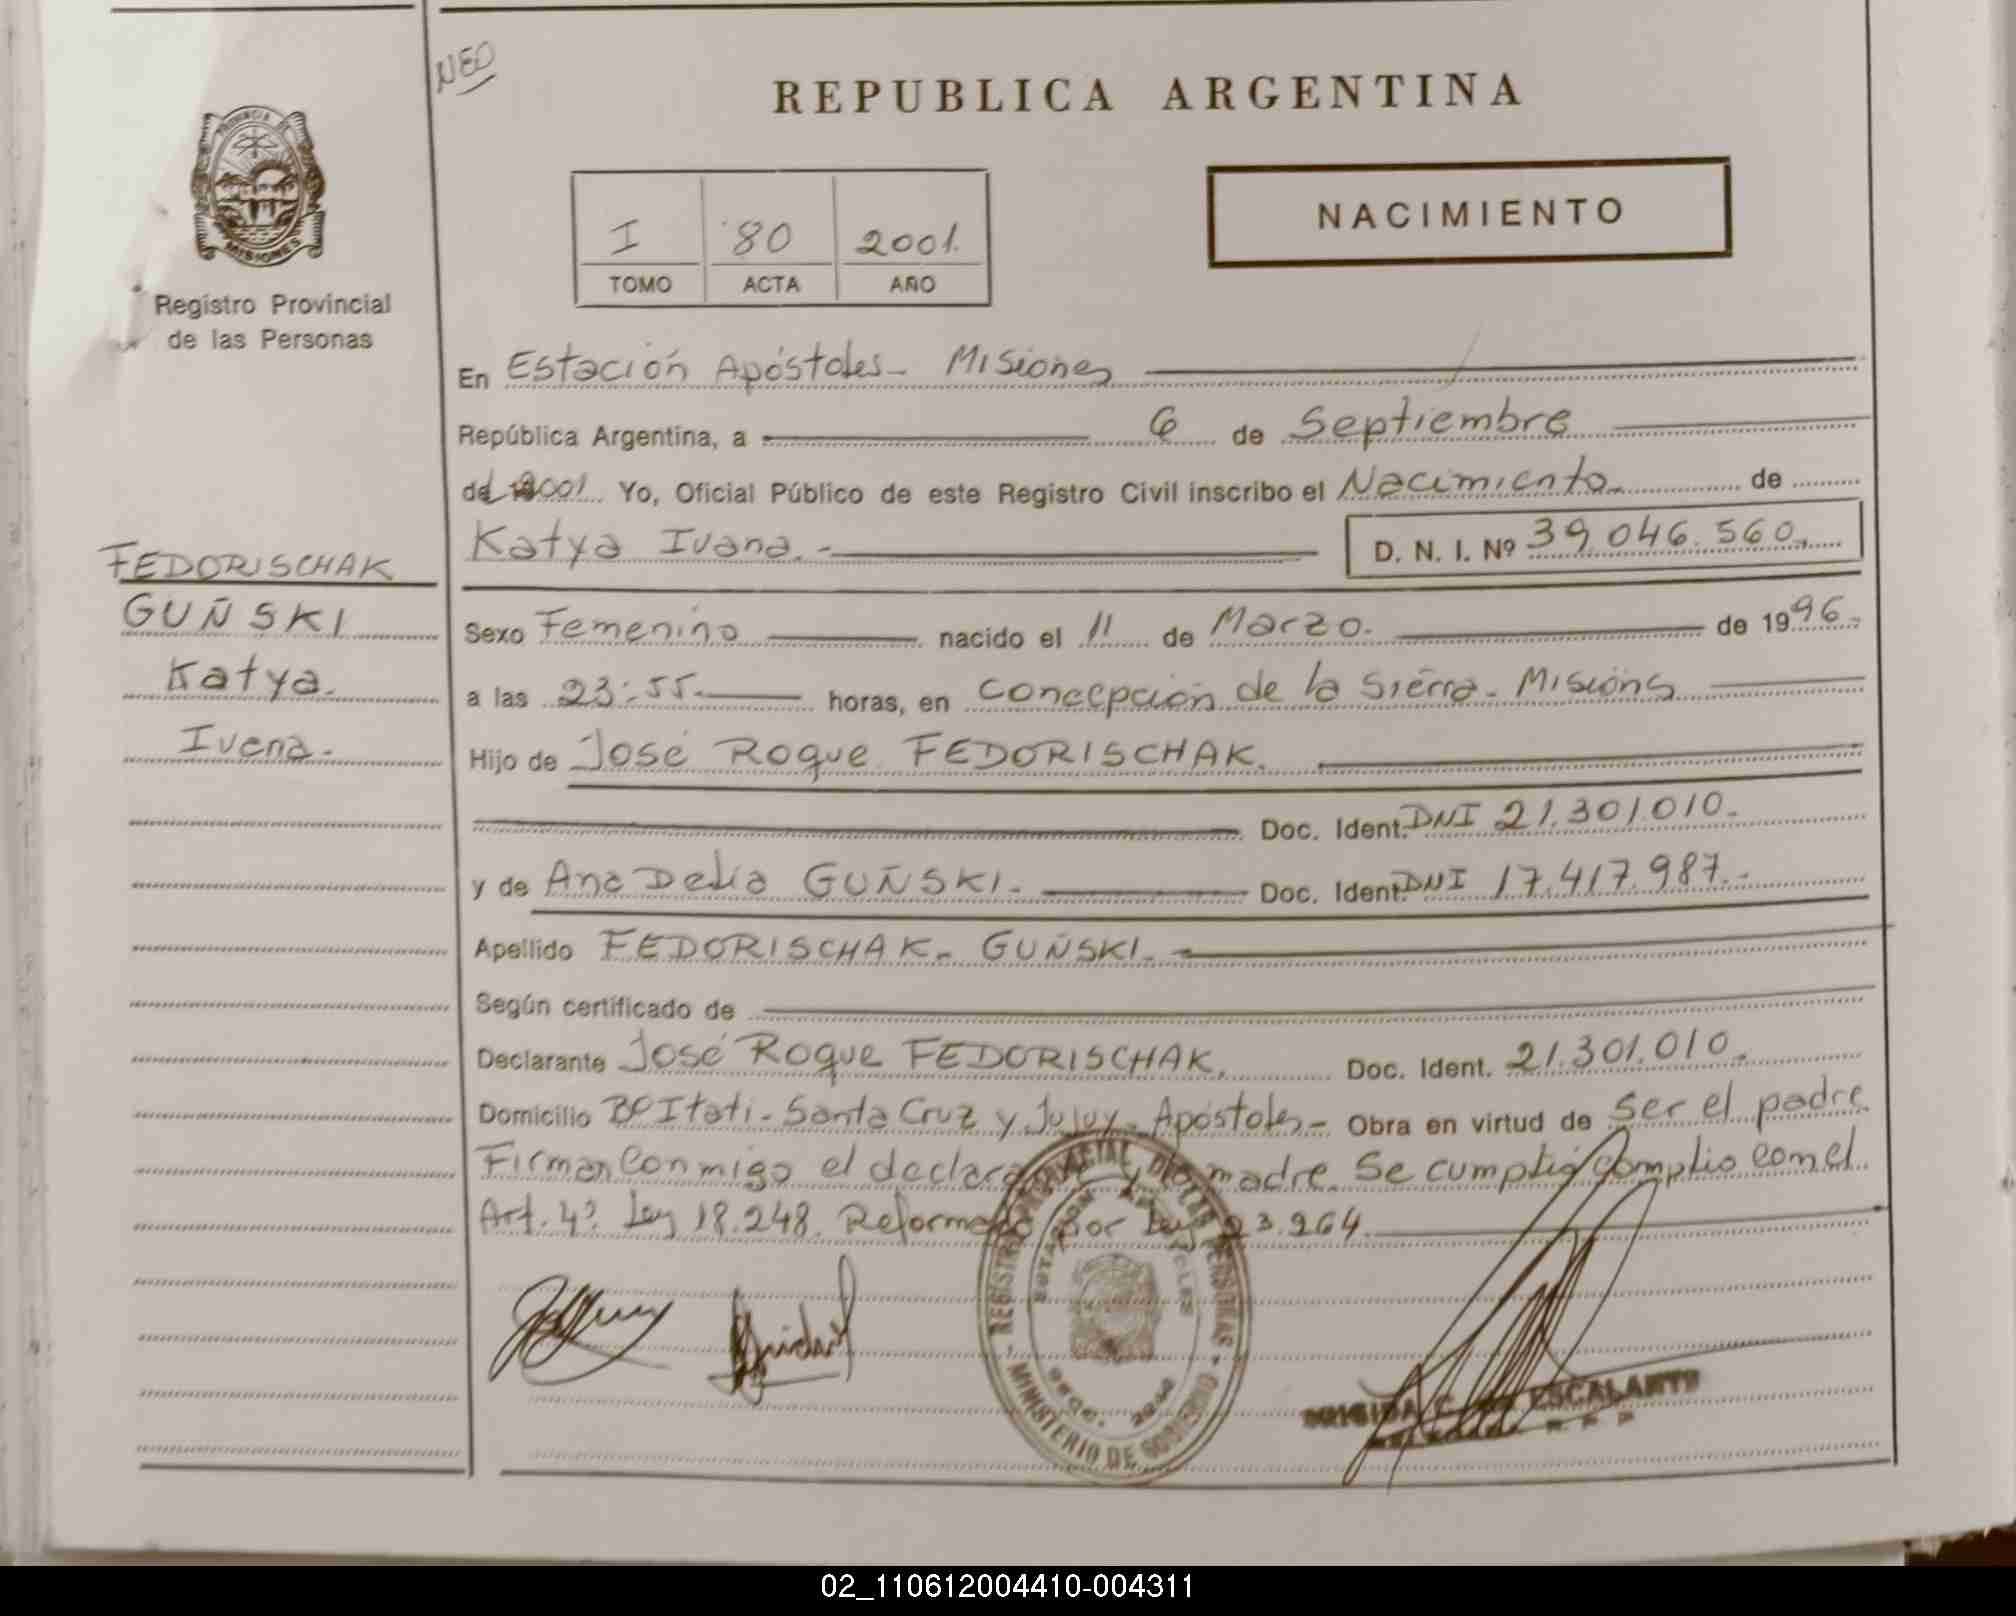 NEO
REPUBLICA ARGENTINA
PROVINCIA DE
MISIONES
Registro Provincial
de las Personas
I 80 2001.
TOMO ACTA AÑO
NACIMIENTO
En Estación Apóstoles - Misiones
República Argentina, a 6 de Septiembre
del 2001. Yo, Oficial Público de este Registro Civil inscribo el Nacimiento. de
Katya Ivana.- D. N. I. Nº 39.046.560.
FEDORISCHAK
GUÑSKI
Katya.
Ivana.-
Sexo Femenino nacido el 11 de Marzo. de 1996.-
a las 23:55.- horas, en Concepción de la Sierra - Misiones
Hijo de José Roque FEDORISCHAK.
Doc. Ident. DNI 21.301.010.-
y de Ana Delia GUÑSKI.- Doc. Ident. DNI 17.417.987.-
Apellido FEDORISCHAK - GUÑSKI.-
Según certificado de
Declarante José Roque FEDORISCHAK. Doc. Ident. 21.301.010.
Domicilio Bº Itati - Santa Cruz y Jujuy - Apóstoles - Obra en virtud de ser el padre
Firman conmigo el declarante y la madre. Se cumplió complio con el
Art. 4º. Ley 18.248. Reformado por Ley 23.264.
REGISTRO PROVINCIAL DE LAS PERSONAS
MINISTERIO DE GOBIERNO
ESTACION APOSTOLES
BRIGIDA C. DE ESCALANTE
R. P. P.
02_110612004410-004311